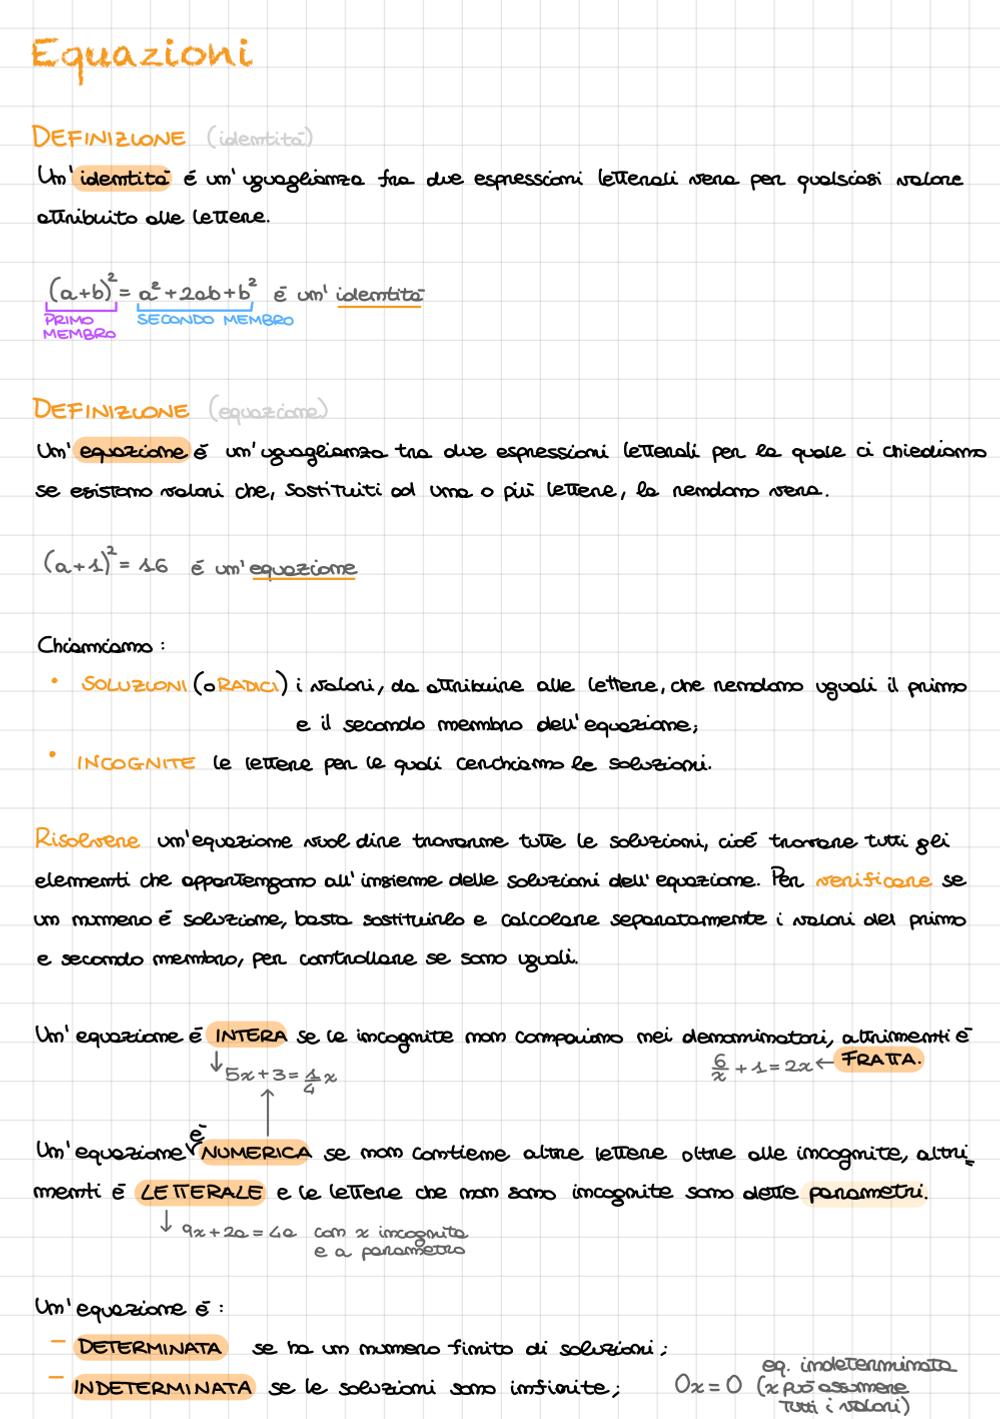 Equazioni
DEFINIZIONE (identità)
Un'identità é un'uguaglianza fra due espressioni letterali vera per qualsiasi valore
attribuito alle lettere.
(a+b)² = a² + 2ab + b² é un'identità
PRIMO MEMBRO SECONDO MEMBRO
DEFINIZIONE (equazione)
Un'equazione é un'uguaglianza tra due espressioni letterali per la quale ci chiediamo
se esistono valori che, sostituiti ad una o più lettere, la rendano vera.
(a+1)² = 16 é un'equazione
Chiamiamo:
• SOLUZIONI (o RADICI) i valori, da attribuire alle lettere, che rendano uguali il primo
e il secondo membro dell'equazione;
• INCOGNITE le lettere per le quali cerchiamo le soluzioni.
Risolvere un'equazione vuol dire trovarne tutte le soluzioni, cioé trovare tutti gli
elementi che appartengono all'insieme delle soluzioni dell'equazione. Per verificare se
un numero é soluzione, basta sostituirlo e calcolare separatamente i valori del primo
e secondo membro, per controllare se sono uguali.
Un'equazione é INTERA se le incognite non compaiono nei denominatori, altrimenti é
FRATTA.
↓ 5x+3 = 1/4 x 6/x + 1 = 2x ←
Un'equazione é NUMERICA se non contiene altre lettere oltre alle incognite, altri_
menti é LETTERALE e le lettere che non sono incognite sono dette parametri.
↓ 9x+2a = 4a con x incognita
e a parametro
Un'equazione é:
– DETERMINATA se ha un numero finito di soluzioni;
– INDETERMINATA se le soluzioni sono infinite; 0x = 0 eq. indeterminata
(x può assumere
tutti i valori)